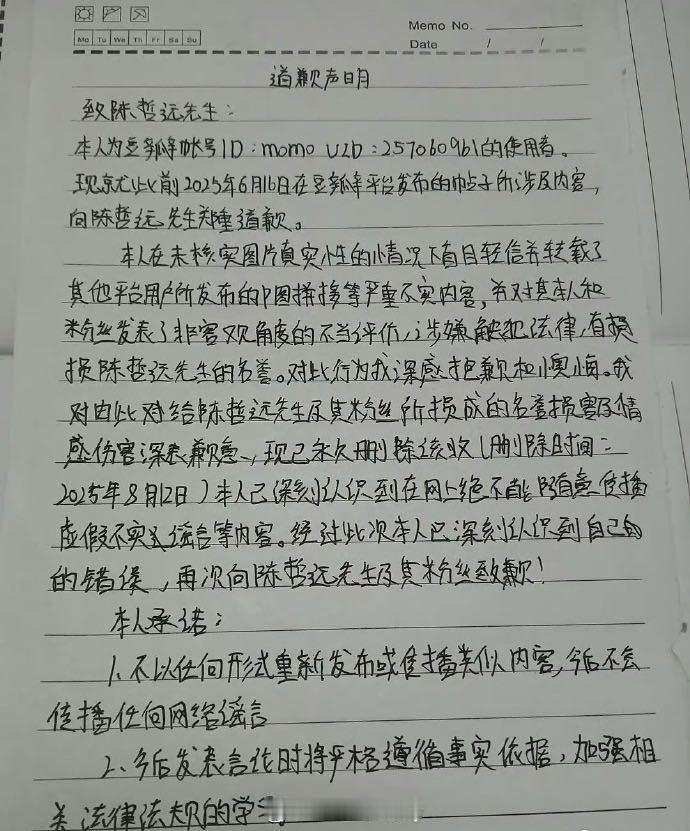 Memo No.
Mo Tu We Th Fr Sa Su
Date / /
道歉声明
致陈哲远先生:
本人为豆瓣帐号ID:momo UID:257060961的使用者。
现就此前2025年6月16日在豆瓣平台发布的帖子所涉及内容,
向陈哲远先生郑重道歉。
本人在未核实图片真实性的情况下盲目轻信并转载了
其他平台用户所发布的P图拼接等严重不实内容,并对其本人和
粉丝发表了非客观角度的不当评价,涉嫌触犯法律,有损
损陈哲远先生的名誉。对此行为我深感抱歉和懊悔。我
对由此对给陈哲远先生及其粉丝所损成的名誉损害及情
感伤害深表歉意,现已永久删除该收(删除时间:
2025年8月12日)本人已深刻认识到在网上绝不能随意传播
虚假不实谣言等内容。经过此次本人已深刻认识到自己的
的错误,再次向陈哲远先生及其粉丝致歉!
本人承诺:
1、不以任何形式重新发布或传播类似内容,今后不会
传播任何网络谣言
2、今后发表言论时将严格遵循事实依据,加强相
关法律法规的学习。